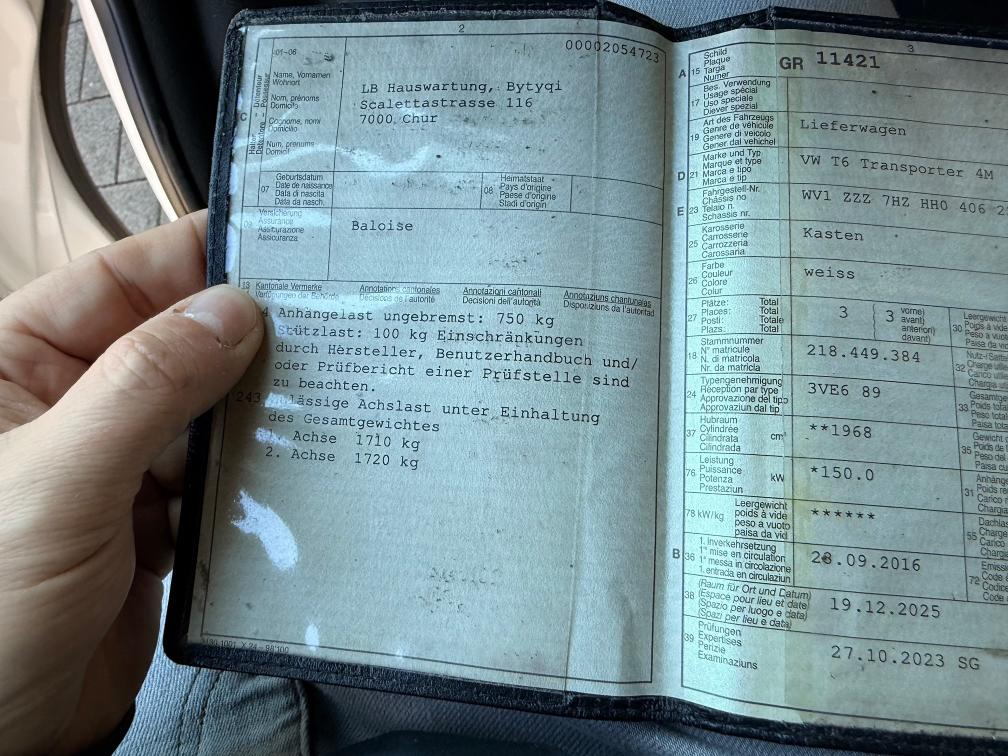 2
00002054723
01-06
C
Name, Vornamen
Wohnort
Nom, prénoms
Domicile
Cognome, nomi
Domicilio
Num, prenums
Domicil
LB Hauswartung, Bytyqi
Scalettastrasse 116
7000 Chur
07
Geburtsdatum
Date de naissance
Data di nascita
Data da nasch.
08
Heimatstaat
Pays d'origine
Paese d'origine
Stadi d'origin
09
Versicherung
Assurance
Assicurazione
Assicuranza
Baloise
13 Kantonale Vermerke Annotations cantonales Annotazioni cantonali Annotaziuns chantunalas
Verfügungen der Behörde Décisions de l'autorité Decisioni dell'autorità Dispositiuns da l'autoritad
Anhängelast ungebremst: 750 kg
Stützlast: 100 kg Einschränkungen
durch Hersteller, Benutzerhandbuch und/
oder Prüfbericht einer Prüfstelle sind
zu beachten.
243 Zulässige Achslast unter Einhaltung
des Gesamtgewichtes
Achse 1710 kg
2. Achse 1720 kg
3
A 15
Schild
Plaque
Targa
Numer
GR 11421
17
Bes. Verwendung
Usage spécial
Uso speciale
Diever spezial
19
Art des Fahrzeugs
Genre de véhicule
Genere di veicolo
Gener dal vehichel
Lieferwagen
D 21
Marke und Typ
Marque et type
Marca e tipo
Marca e tip
VW T6 Transporter 4M
E 23
Fahrgestell-Nr.
Châssis no
Telaio n.
Schassis nr.
WV1 ZZZ 7HZ HH0 406
25
Karosserie
Carrosserie
Carrozzeria
Carossaria
Kasten
26
Farbe
Couleur
Colore
Colur
weiss
27
Plätze: Total
Places: Total
Posti: Totale
Plazs: Total
3
3
vorne)
avant)
anteriori)
davant)
18
Stammnummer
N° matricule
N. di matricola
Nr. da matricla
218.449.384
24
Typengenehmigung
Réception par type
Approvazione del tipo
Approvaziun dal tip
3VE6 89
37
Hubraum
Cylindrée
Cilindrata
Cilindrada
cm³
**1968
76
Leistung
Puissance
Potenza
Prestaziun
kW
*150.0
78 kW/kg
Leergewicht
poids à vide
peso a vuoto
paisa da vid
******
B 36
1. Inverkehrsetzung
1re mise en circulation
1a messa in circolazione
1. entrada en circulaziun
28.09.2016
38
(Raum für Ort und Datum)
(Espace pour lieu et date)
(Spazio per luogo e data)
(Spazi per lieu e data)
19.12.2025
39
Prüfungen
Expertises
Perizie
Examinaziuns
27.10.2023 SG
30
Leergewicht
32
33
35
31
55
72